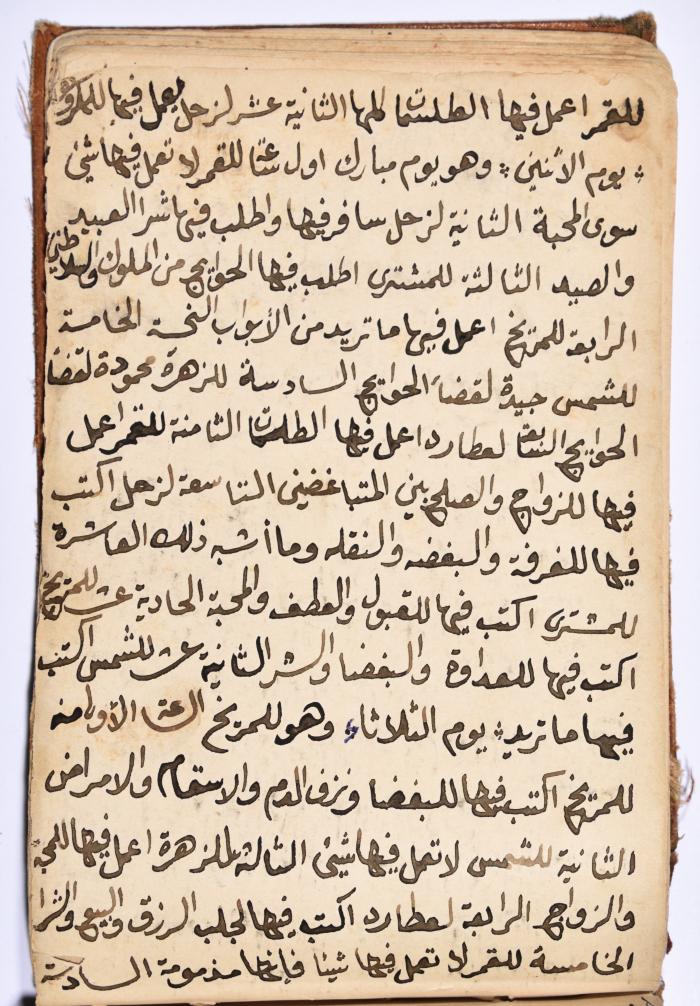 للقمر اعمل فيها الطلسمات كلها الثانية عشر لزحل يعمل فيها للمكروه
؞ يوم الاثنين ؞ وهو يوم مبارك اول ساعة للقمر لا تعمل فيها شئ
سوى المحبة الثانية لزحل سافر فيها واطلب فيها شرا العبيد
والصيد الثالثة للمشترى اطلب فيها الحوايج من الملوك والسلاطين
الرابعة للمريخ اعمل فيها ما تريد من الأبواب النحسة الخامسة
للشمس جيدة لقضاء الحوايج السادسة للزهرة محمودة لقضا
الحوايج السابعة لعطارد اعمل فيها الطلسمات الثامنة للقمر اعمل
فيها للزواج والصلح بين المتباغضين التاسعة لزحل اكتب
فيها للفرقة والبغضه والنقله وما أشبه ذلك العاشرة
للمشترى اكتب فيها للقبول والعطف والمحبة الحادية عشر للمريخ
اكتب فيها للعداوة والبغضا والشر الثانية عشر للشمس اكتب
فيها ما تريد ؞ يوم الثلاثاء ؞ وهو للمريخ الساعة الأولى منه
للمريخ اكتب فيها للبغضا ونزف الدم والاسقام والامراض
الثانية للشمس لا تعمل فيها شئ الثالثة للزهرة اعمل فيها للمحبة
والزواج الرابعة لعطارد اكتب فيها لجلب الرزق والبيع والشرا
الخامسة للقمر لا تعمل فيها شيئا فإنها مذمومة السادسة